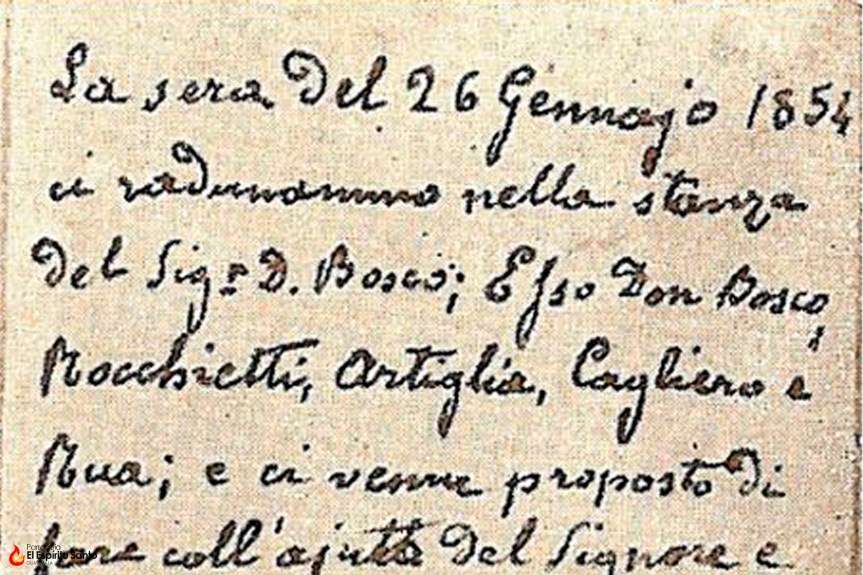 La sera del 26 Gennajo 1854
ci radunammo nella stanza
del Sig.r D. Bosco; Esso Don Bosco,
Rocchietti, Artiglia, Cagliero e
Rua; e ci venne proposto di
fare coll'ajuto del Signore e
Parroquia
El Espíritu Santo